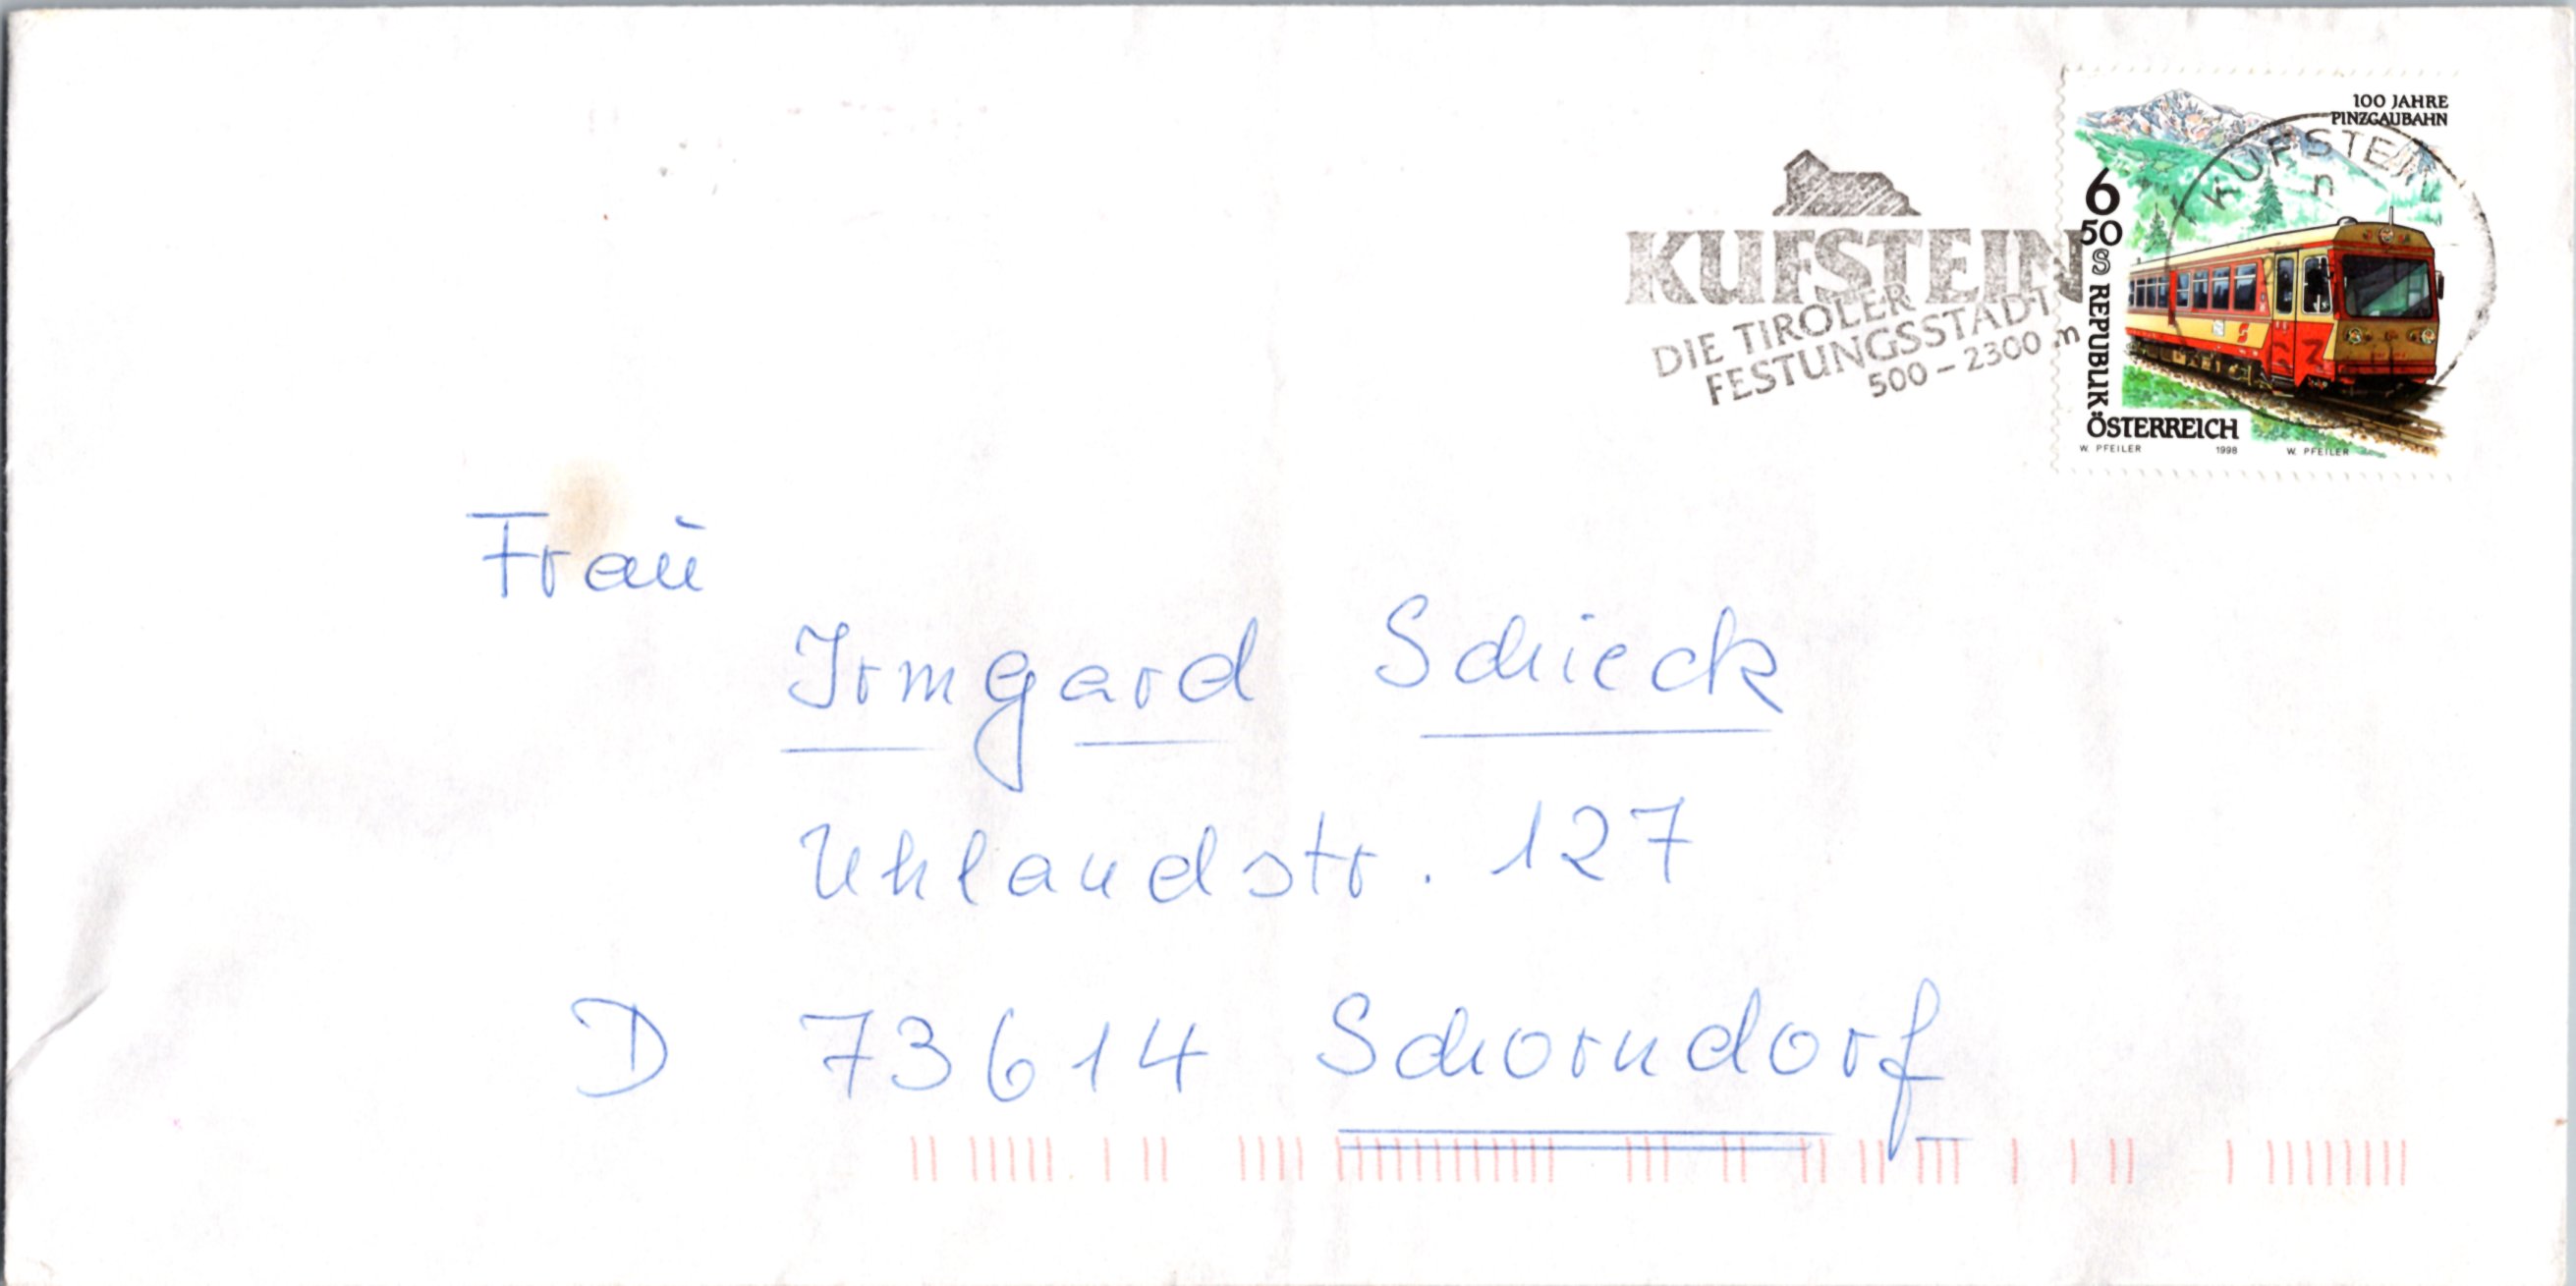 100 JAHRE
PINZGAUBAHN
KUFSTEIN
n
6
50
S
REPUBLIK
ÖSTERREICH
W. PFEILER 1998 W. PFEILER
KUFSTEIN
DIE TIROLER
FESTUNGSSTADT
500 – 2300 m
Frau
Irmgard Schieck
Uhlandstr. 127
D 73614 Schorndorf